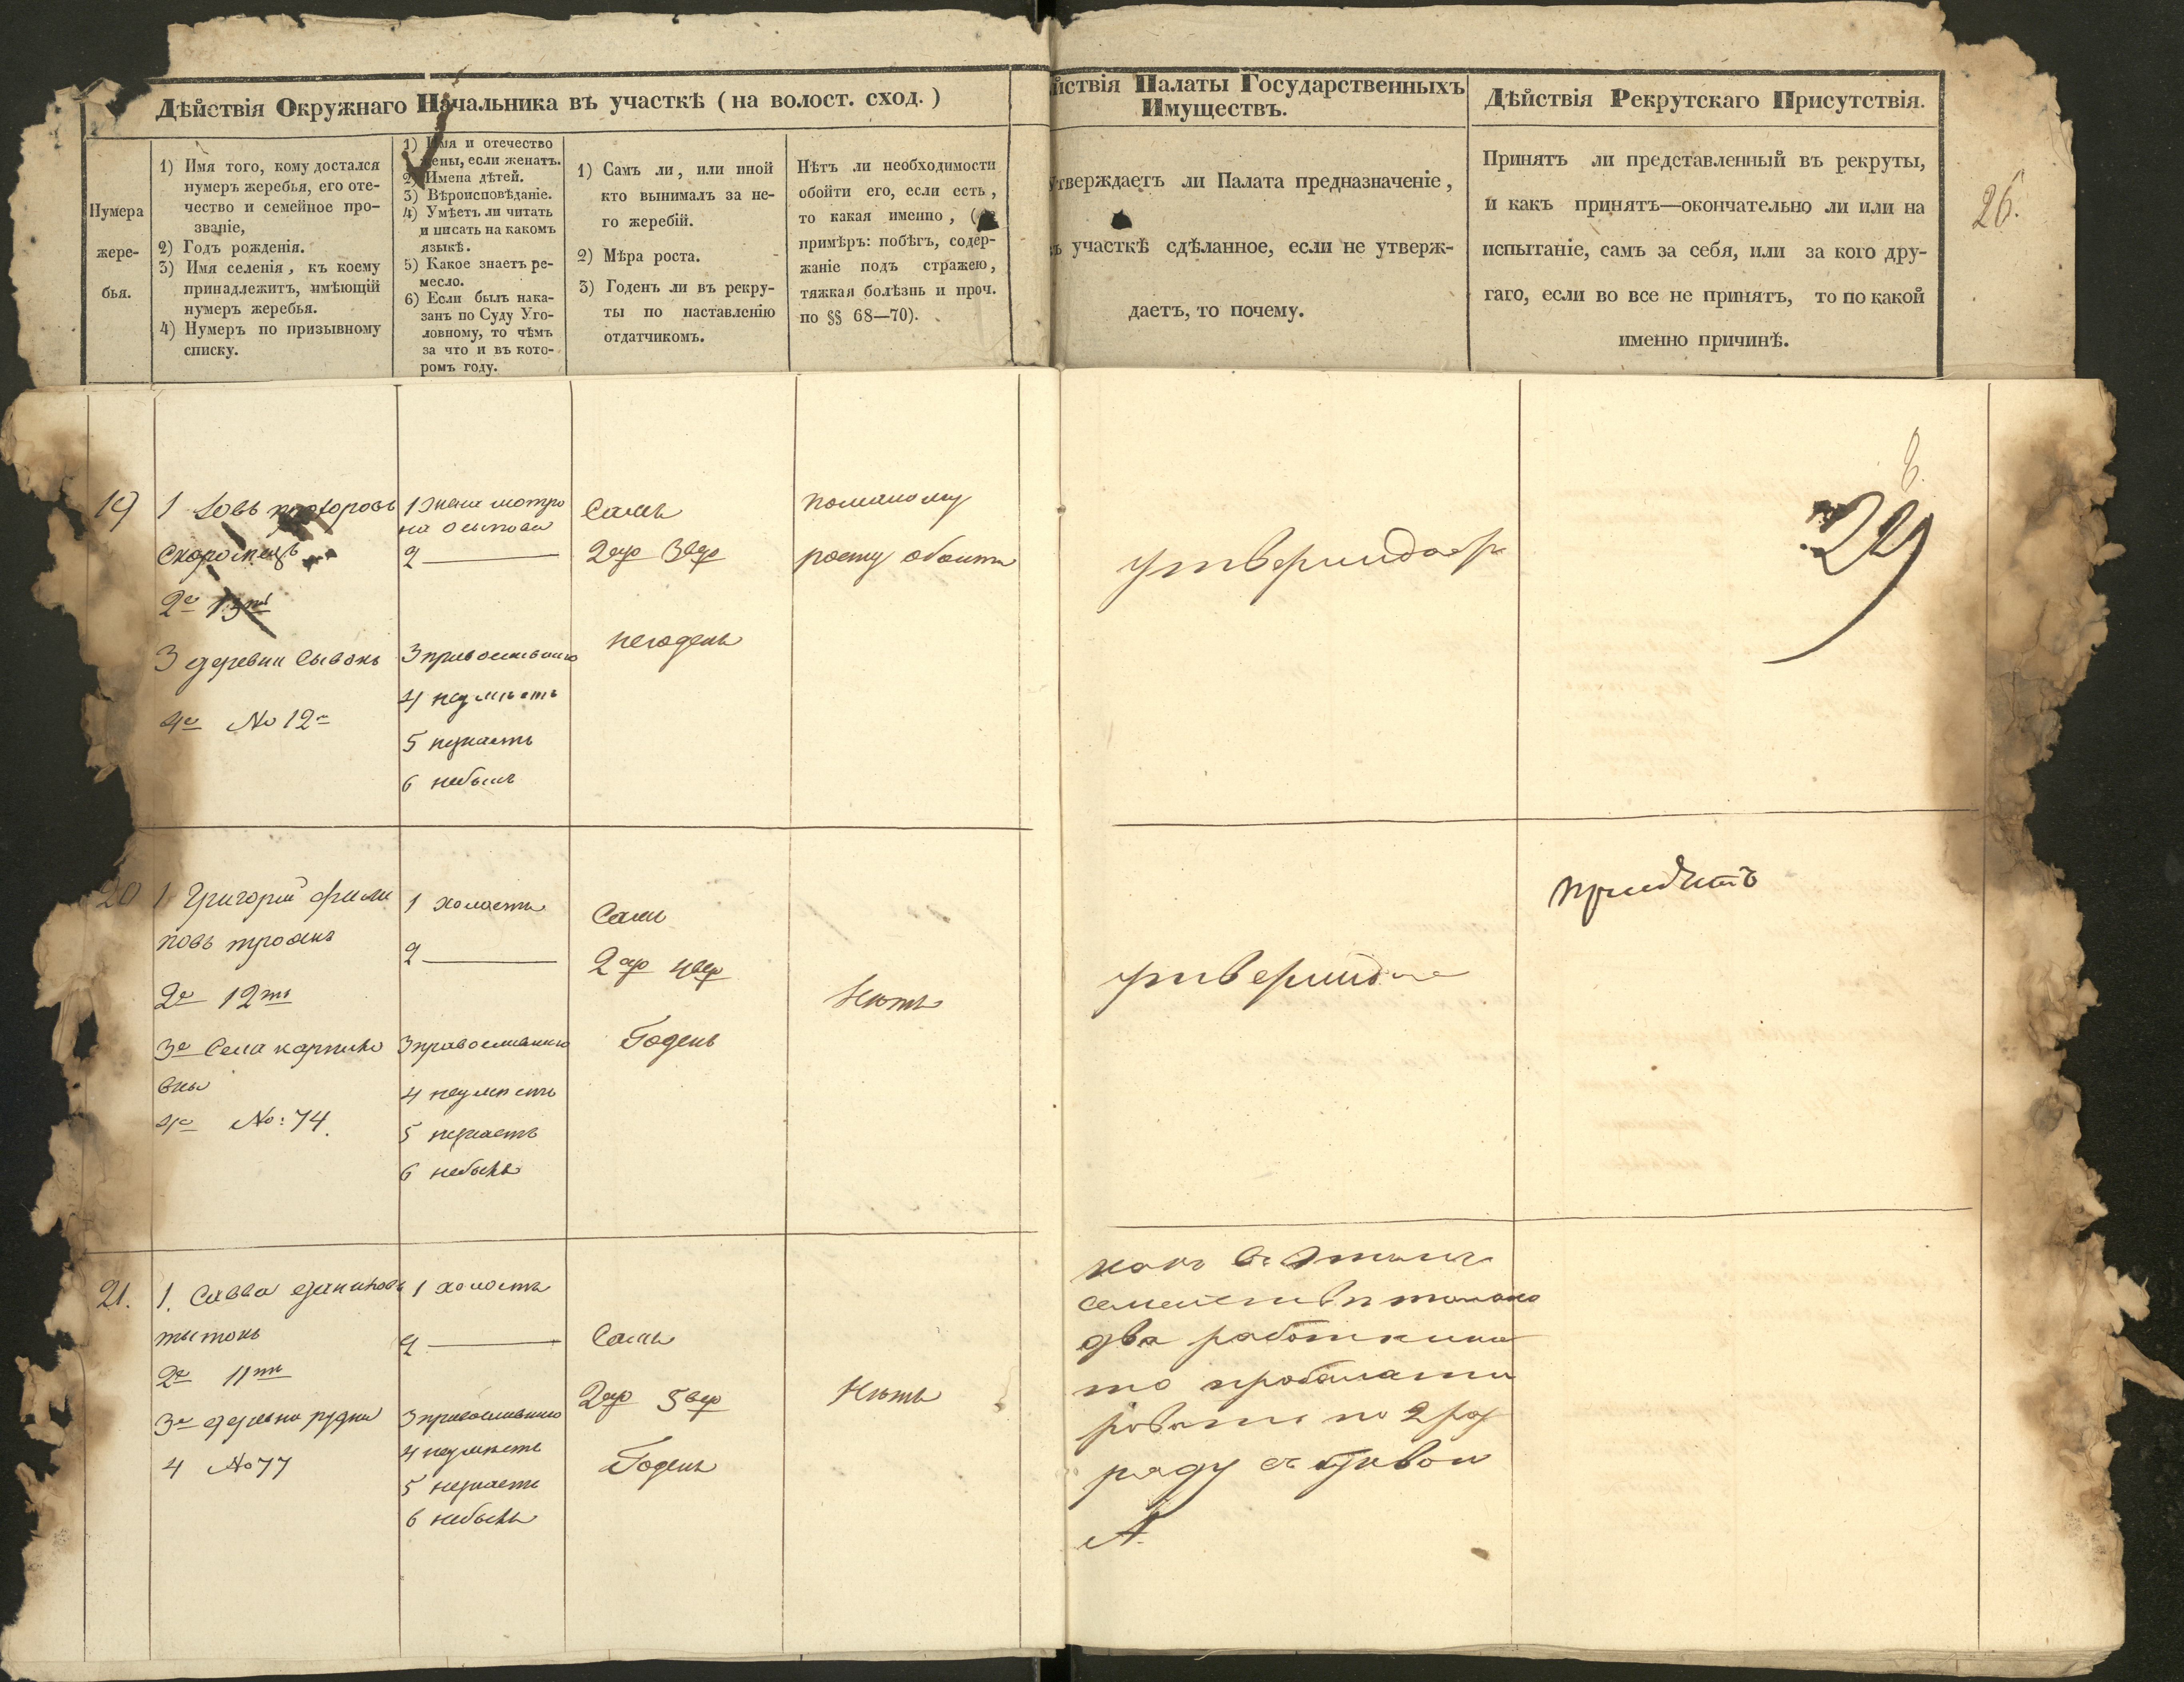 Дѣйствія Окружнаго Начальника въ участкѣ (на волост. сход.)
Нумера
жере-
бья.
1) Имя того, кому достался
нумеръ жеребья, его оте-
чество и семейное про-
званіе,
2) Годъ рожденія.
3) Имя селенія, къ коему
принадлежитъ, имѣющій
нумеръ жеребья.
4) Нумеръ по призывному
списку.
1) Имя и отечество
жены, если женатъ.
2) Имена дѣтей.
3) Вѣроисповѣданіе.
4) Умѣетъ ли читать
и писать на какомъ
языкѣ.
5) Какое знаетъ ре-
месло.
6) Если былъ нака-
занъ по Суду Уго-
ловному, то чѣмъ
за что и въ кото-
ромъ году.
1) Самъ ли, или иной
кто вынималъ за не-
го жеребій.
2) Мѣра роста.
3) Годенъ ли въ рекру-
ты по наставленію
отдатчикомъ.
Нѣтъ ли необходимости
обойти его, если есть,
то какая именно, (
примѣръ: побѣгъ, содер-
жаніе подъ стражею,
тяжкая болѣзнь и проч.
по §§ 68—70).
йствія Палаты Государственныхъ
Имуществъ.
Утверждаетъ ли Палата предназначеніе,
въ участкѣ сдѣланное, если не утверж-
даетъ, то почему.
Дѣйствія Рекрутскаго Присутствія.
Принятъ ли представленный въ рекруты,
и какъ принятъ—окончательно ли или на
испытаніе, самъ за себя, или за кого дру-
гаго, если во все не принятъ, то по какой
именно причинѣ.
26.
19
1 Іовъ прохоровъ
Скоромецъ
2е 13ть
3 деревни Сывокъ
4е No 12
1 жена мотро
на осипова
2
3 православнаго
4 неумѣетъ
5 незнаетъ
6 небылъ
Самъ
2ар 3вер
негоденъ
помалому
росту обоити
утверждаетъ
29
20
1 Григорій фили
повъ троянъ
2е 12ть
3е Села карпило
вки
4е No: 74
1 холостъ
2
3 православнаго
4 неумѣетъ
5 незнаетъ
6 небылъ
Самъ
2ар 4вер
Годенъ
Нѣтъ
утвержда
21.
1. Савва даниловъ
тытокъ
2е 11ть
3е деревни рудни
4 No 77
1 холостъ
2
3 православнаго
4 неумѣетъ
5 незнаетъ
6 небылъ
Самъ
2ар 5вер
Годенъ
Нѣтъ
какъ въ этомъ
семействѣ только
два работника
то
по 2 раз
ряду